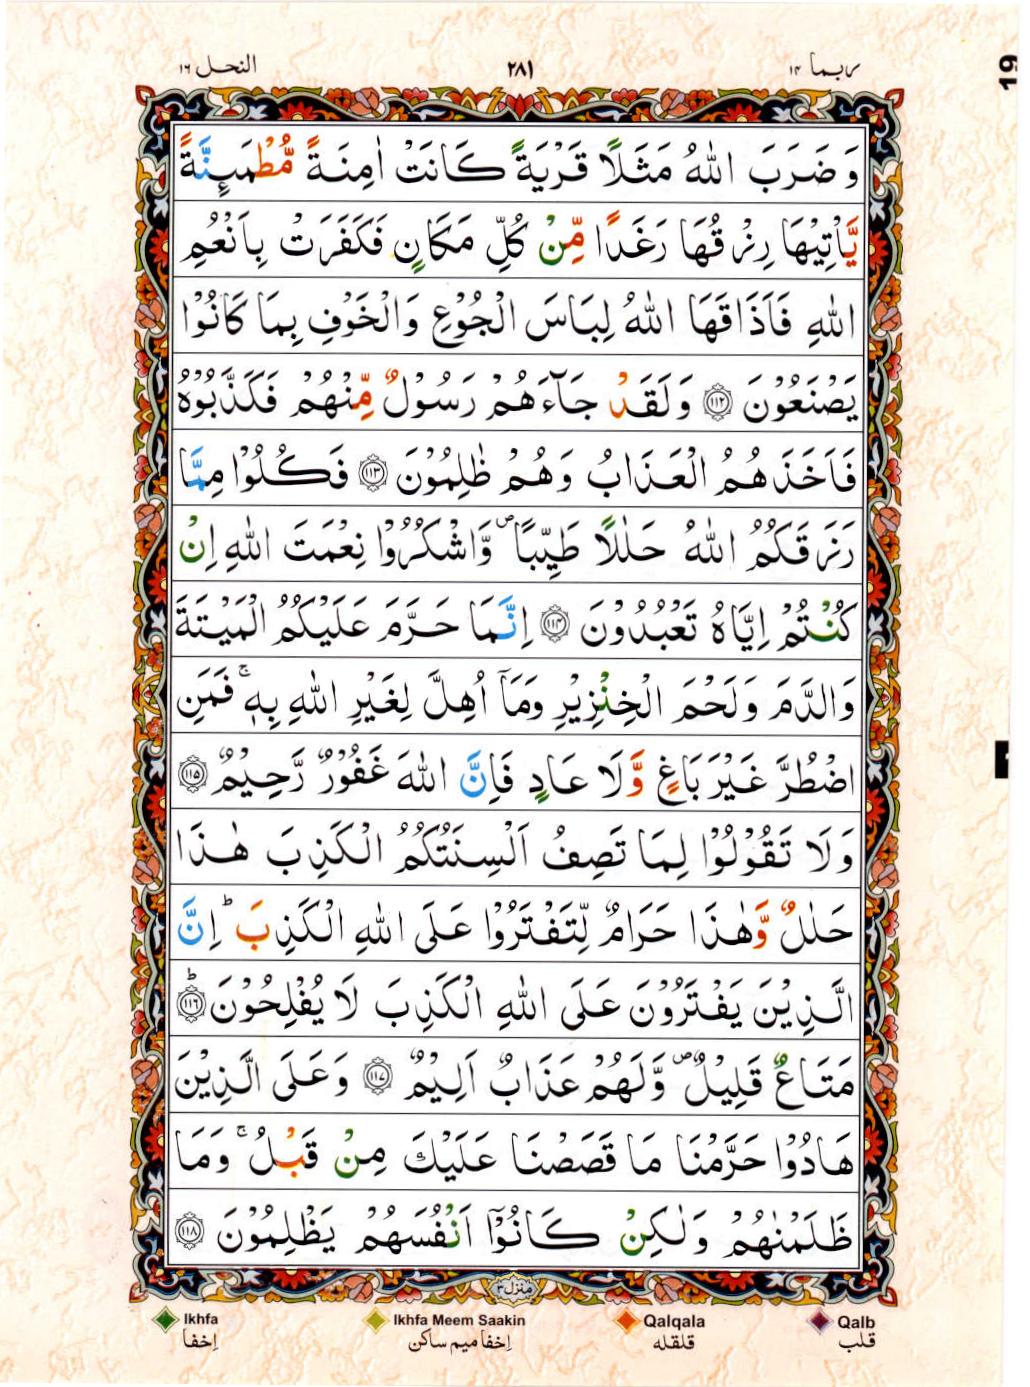 النحل ۱۶ ۲۸۱ ربما ۱۴
19
وَضَرَبَ اللّٰهُ مَثَلًا قَرْيَةً كَانَتْ اٰمِنَةً مُّطْمَىِٕنَّةً
يَّاْتِيْهَا رِزْقُهَا رَغَدًا مِّنْ كُلِّ مَكَانٍ فَكَفَرَتْ بِاَنْعُمِ
اللّٰهِ فَاَذَاقَهَا اللّٰهُ لِبَاسَ الْجُوْعِ وَالْخَوْفِ بِمَا كَانُوْا
يَصْنَعُوْنَ ﴿۱۱۲﴾ وَلَقَدْ جَآءَهُمْ رَسُوْلٌ مِّنْهُمْ فَكَذَّبُوْهُ
فَاَخَذَهُمُ الْعَذَابُ وَهُمْ ظٰلِمُوْنَ ﴿۱۱۳﴾ فَكُلُوْا مِمَّا
رَزَقَكُمُ اللّٰهُ حَلٰلًا طَيِّبًا ۪ وَّاشْكُرُوْا نِعْمَتَ اللّٰهِ اِنْ
كُنْتُمْ اِيَّاهُ تَعْبُدُوْنَ ﴿۱۱۴﴾ اِنَّمَا حَرَّمَ عَلَيْكُمُ الْمَيْتَةَ
وَالدَّمَ وَلَحْمَ الْخِنْزِيْرِ وَمَاۤ اُهِلَّ لِغَيْرِ اللّٰهِ بِهٖ ۚ فَمَنِ
اضْطُرَّ غَيْرَ بَاغٍ وَّلَا عَادٍ فَاِنَّ اللّٰهَ غَفُوْرٌ رَّحِيْمٌ ﴿۱۱۵﴾
وَلَا تَقُوْلُوْا لِمَا تَصِفُ اَلْسِنَتُكُمُ الْكَذِبَ هٰذَا
حَلٰلٌ وَّهٰذَا حَرَامٌ لِّتَفْتَرُوْا عَلَى اللّٰهِ الْكَذِبَ ؕ اِنَّ
الَّذِيْنَ يَفْتَرُوْنَ عَلَى اللّٰهِ الْكَذِبَ لَا يُفْلِحُوْنَ ؕ﴿۱۱۶﴾
مَتَاعٌ قَلِيْلٌ ۪ وَّلَهُمْ عَذَابٌ اَلِيْمٌ ﴿۱۱۷﴾ وَعَلَى الَّذِيْنَ
هَادُوْا حَرَّمْنَا مَا قَصَصْنَا عَلَيْكَ مِنْ قَبْلُ ۚ وَمَا
ظَلَمْنٰهُمْ وَلٰكِنْ كَانُوْۤا اَنْفُسَهُمْ يَظْلِمُوْنَ ﴿۱۱۸﴾
منزل ۳
Ikhfa Ikhfa Meem Saakin Qalqala Qalb
إخفا إخفا ميم ساكن قلقله قلب